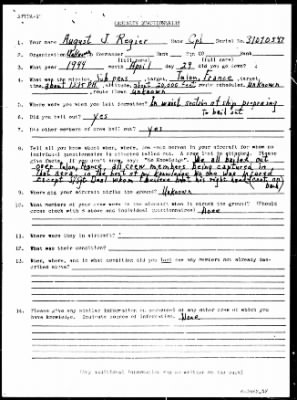 CASUALTY QUESTIONNAIRE
1. Your name August J Regier Rank Cpl Serial No.
2. Organization Commander Rank Sqn CO
(full name) (full name)
3. What year 1944 month April day 29 did you go down?
4. What was the mission, Sub pens, target, Toulon, France, target
time, about altitude, about 20,000 feet route scheduled, Unknown
, route flown Unknown
5. Where were you when you left formation? In waist section of ship preparing
to bail out
6. Did you bail out? yes
7. Did other members of crew bail out? yes
8. Tell all you know about when, where, how each person in your aircraft for whom no
individual questionnaire is attached bailed out. A crew list is attached. Please
give facts. If you don't know, say: "No Knowledge". We all bailed out
over Toulon, France, all crew members being captured in
that area, to the best of my knowledge no one was injured
except
9. Where did your aircraft strike the ground? Unknown
10. What members of your crew were in the aircraft when it struck the ground? (Should
cross check with 8 above and individual questionnaires) None
11. Where were they in aircraft?
12. What was their condition?
13. When, where, and in what condition did you last see any members not already
described above?
14. Please give any similar information on personnel of any other crew of which you
have knowledge. Indicate source of information. None
(Any additional information may be written on the back)